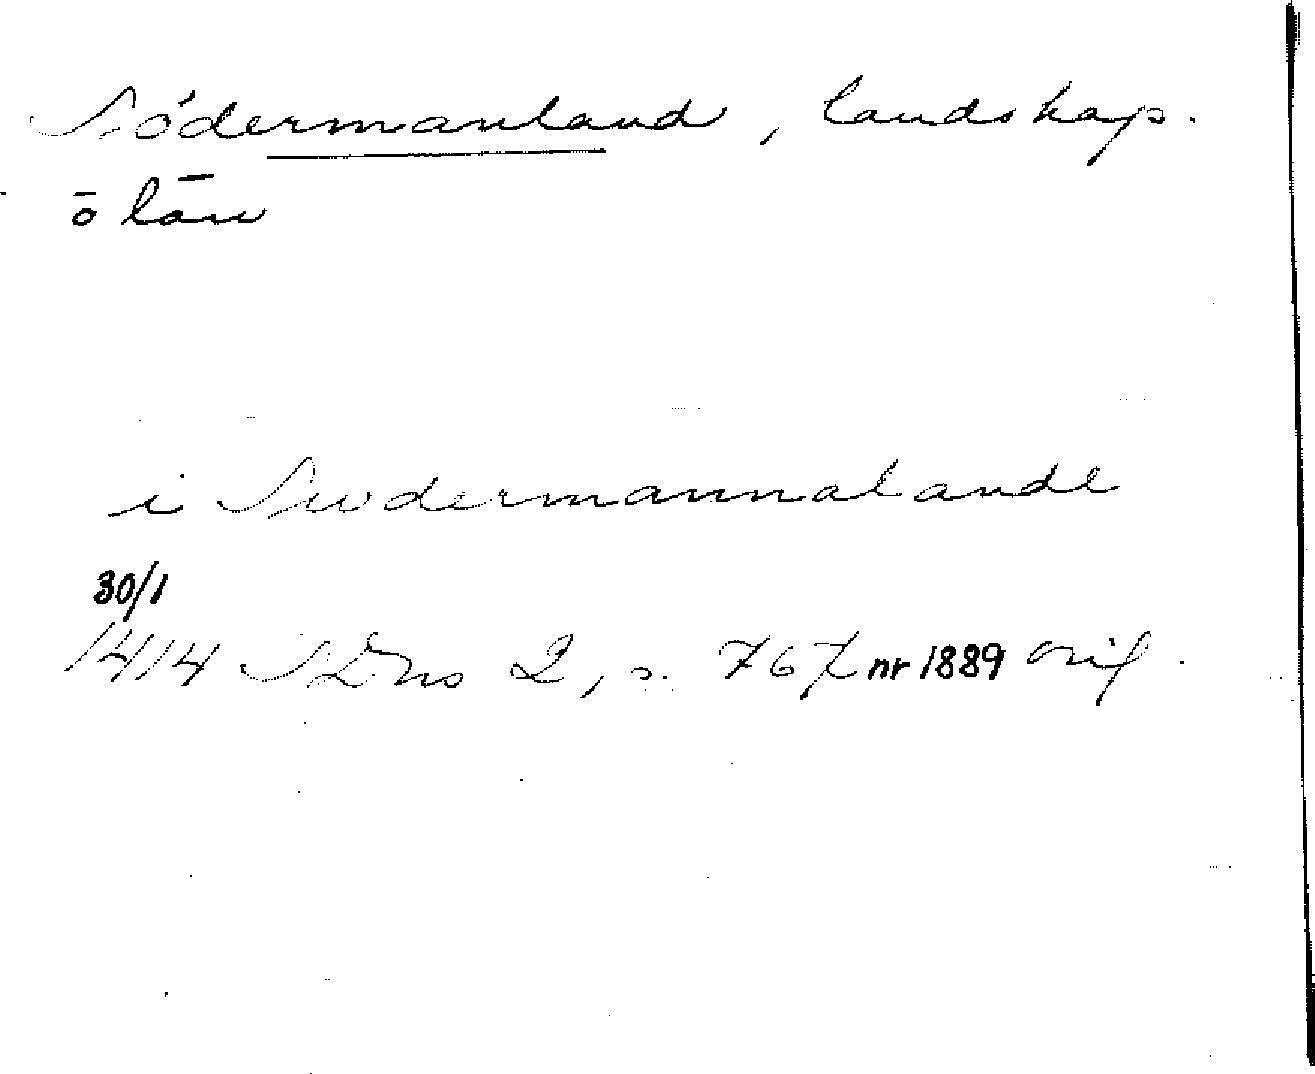 Södermanland, landskap.
o län
i Swdermannalande
30/1
1414 SDns 2, s. 767 nr 1889 orig.